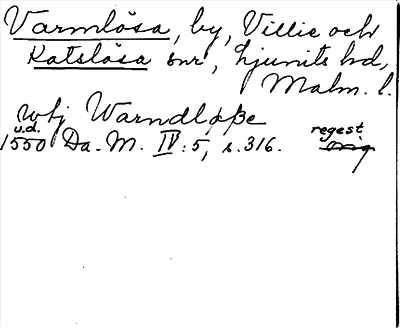 Varmlösa, by, Villie och
Katslösa snr, Ljunits hd,
Malm. l.
utj Warndløße
u.d. regest
1550 Da. M. IV:5, s.316. orig